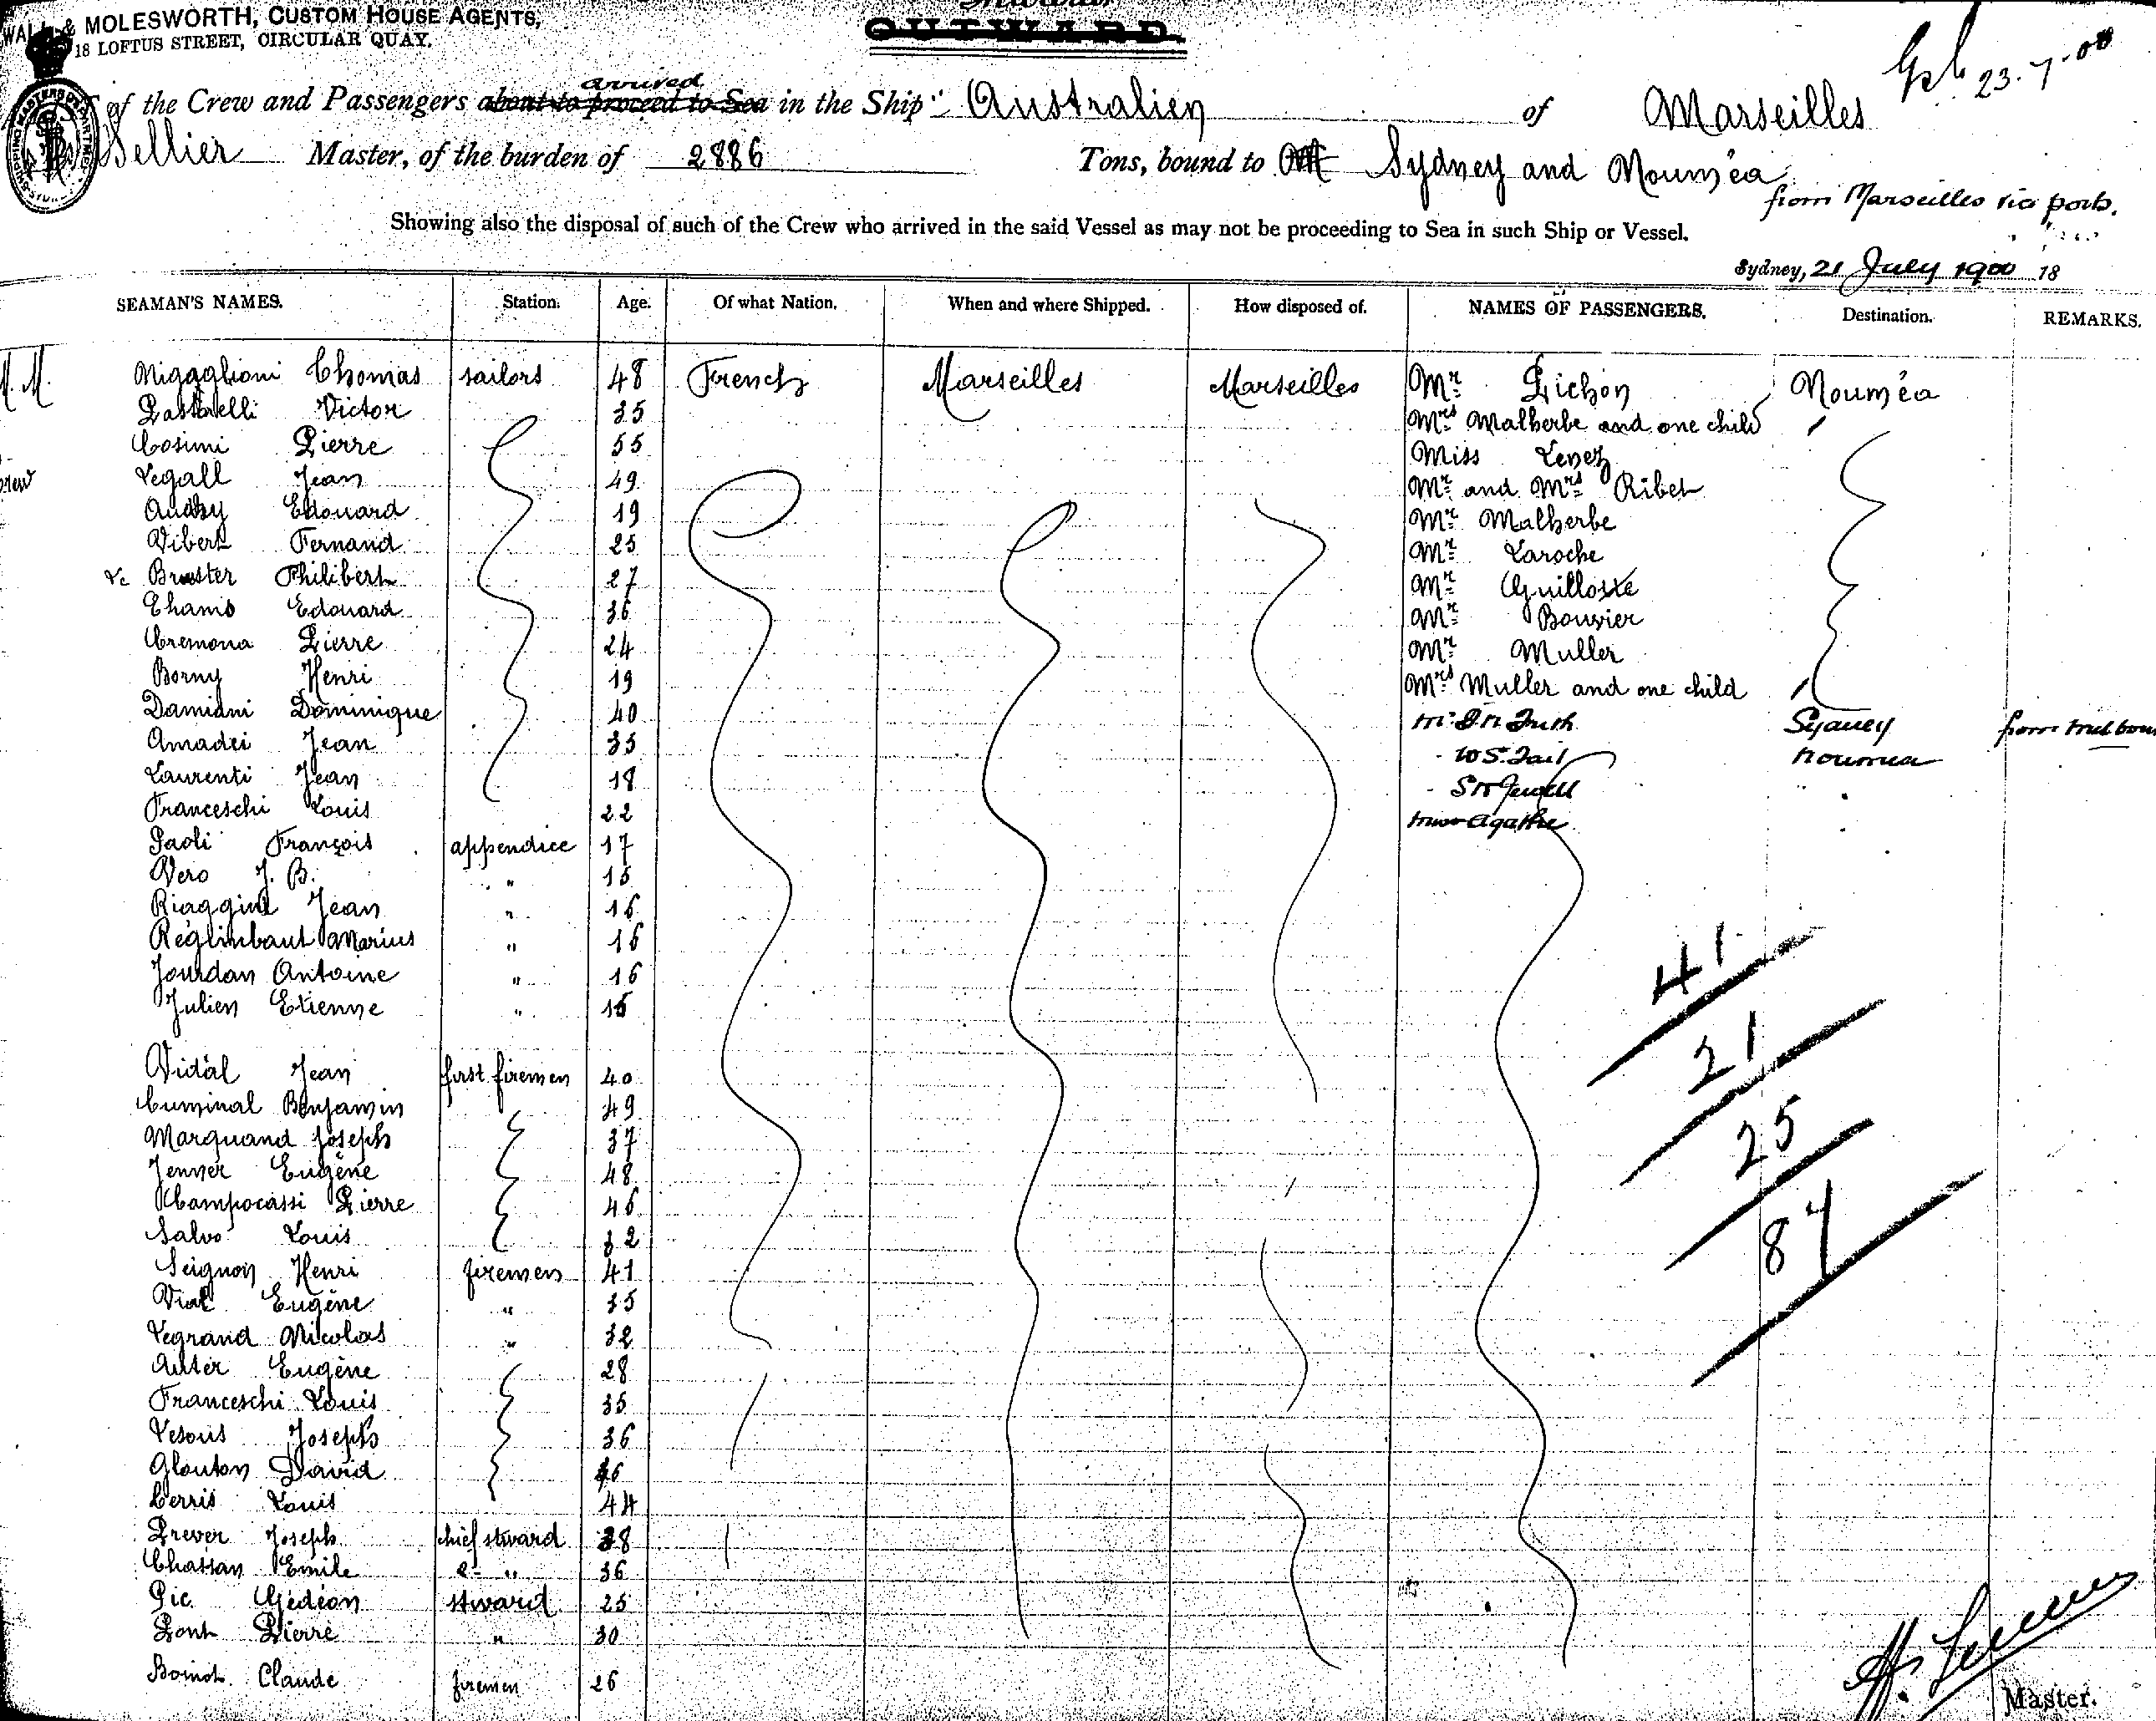 WALL & MOLESWORTH, CUSTOM HOUSE AGENTS,
18 LOFTUS STREET, CIRCULAR QUAY.
OUTWARD.
23.7.00
of the Crew and Passengers about to proceed to Sea arrived in the Ship Australien of Marseilles
Sellier Master, of the burden of 2886 Tons, bound to Sydney and Nouméa
from Marseilles via ports.
Showing also the disposal of such of the Crew who arrived in the said Vessel as may not be proceeding to Sea in such Ship or Vessel.
Sydney, 21 July 1900 18
SEAMAN'S NAMES. Station. Age. Of what Nation. When and where Shipped. How disposed of. NAMES OF PASSENGERS. Destination. REMARKS.
Migaglioni Thomas sailors 48 French Marseilles Marseilles Mr Pichon Nouméa
Pastorelli Victor 35 Mrs Malherbe and one child
Cosimi Pierre 55 Miss Lenez
Legall Jean 49 Mr and Mrs Ribet
Audry Edouard 19 Mr Malherbe
Vibert Fernand 25 Mr Laroche
Le Bruster Philibert 27 Mr Guilloxe
Ehamo Edouard 36 Mr Bouvier
Cremona Pierre 24 Mr Muller
Borny Henri 19 Mrs Muller and one child
Damiani Dominique 40 Mr Sydney from
Amadei Jean 35 W S Tail Noumea
Laurenti Jean 18 Jewell
Franceschi Louis 22 Agathe
Paoli François appendice 17
Vero J. B. " 15
Riaggini Jean " 16
Réglimbaut Marius " 16
Jourdan Antoine " 16
Julien Etienne " 15
41
21
25
87
Vidal Jean first firemen 40
Cuminal Benjamin 49
Marquand Joseph 37
Jenner Eugène 48
Campocassi Pierre 46
Salvo Louis 32
Seignon Henri firemen 41
Vial Eugène " 35
Legrand Nicolas " 32
Auter Eugène 28
Franceschi Louis 35
Vesous Joseph 36
Glouton David 36
Cerris Louis 44
Prever Joseph chief stward 38
Chassan Emile 2- " 36
Pic Gédéon stward 25
Pont Pierre " 30
Boinot Claude firemen 26
Master.